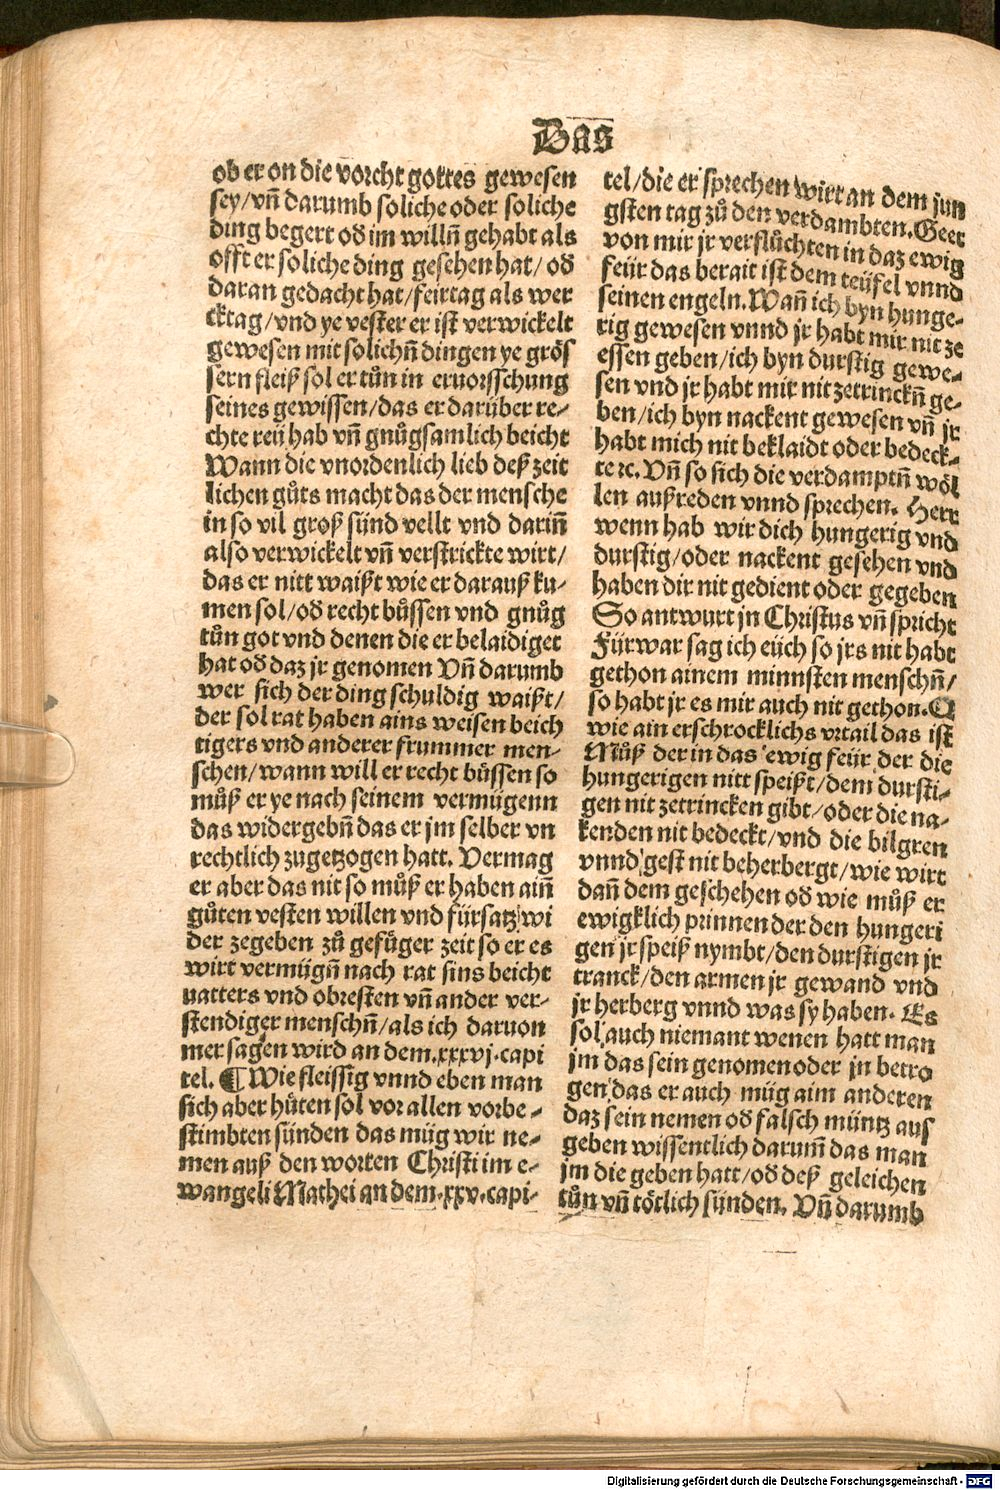 Das
ob er on die vorcht gottes gewesen
sey/vn̄ darumb soliche oder soliche
ding begert od im willn̄ gehabt als
offt er soliche ding gesehen hat/ od
daran gedacht hat/feirtag als wer
cktag/vnd ye vester er ist verwickelt
gewesen mit solichn̄ dingen ye grös
sern fleiß sol er tůn in eruorsschung
seines gewissen/das er darüber re-
chte reü hab vn̄ gnůgsamlich beicht
Wann die vnordenlich lieb deß zeit
lichen gůts macht das der mensche
in so vil groß sünd vellt vnd darin̄
also verwickelt vn̄ verstrickte wirt/
das er nitt waißt wie er darauß ku-
men sol/od recht bůssen vnd gnůg
tůn got vnd denen die er belaidiget
hat od daz jr genomen Vn̄ darumb
wer sich der ding schuldig waißt/
der sol rat haben ains weisen beich
tigers vnd anderer frummer men-
schen/wann will er recht bůssen so
můß er ye nach seinem vermügenn
das widergebn̄ das er jm selber vn
rechtlich zugetzogen hatt. Vermag
er aber das nit so můß er haben ain̄
gůten vesten willen vnd fürsatz wi
der zegeben zů gefůger zeit so er es
wirt vermügn̄ nach rat sins beicht
uatters vnd obresten vn̄ ander ver-
stendiger menschn̄/als ich daruon
mer sagen wird an dem.xxxvj.capi
tel. ¶ Wie fleissig vnnd eben man
sich aber hůten sol vor allen vorbe-
stimbten sünden das müg wir ne-
men auß den worten Christi im e-
wangeli Mathei an dem.xxv.capi-
tel/die er sprechen wirt an dem jun
gsten tag zů den verdambten. Geet
von mir jr verflůchten in daz ewig
feür das berait ist dem teüfel vnnd
seinen engeln. Wan̄ ich byn hunge-
rig gewesen vnnd jr habt mir nit ze
essen geben/ich byn durstig gewe-
sen vnd jr habt mir nit zetrinckn̄ ge-
ben/ich byn nackent gewesen vn̄ jr
habt mich nit beklaidt oder bedeck-
te ⁊c. Vn̄ so sich die verdamptn̄ wöl
len außreden vnnd sprechen. Herr
wenn hab wir dich hungerig vnd
durstig/oder nackent gesehen vnd
haben dir nit gedient oder gegeben
So antwurt jn Christus vn̄ spricht
Fürwar sag ich eüch so jrs nit habt
gethon ainem minnsten menschn̄/
so habt jr es mir auch nit gethon. O
wie ain erschrocklichs vrtail das ist
Můß der in das ewig feür der die
hungerigen nitt speißt/dem dursti-
gen nit zetrincken gibt/oder die na-
kenden nit bedeckt/vnd die bilgren
vnnd gest nit beherbergt/wie wirt
dan̄ dem geschehen od wie můß er
ewigklich prinnen der den hungeri
gen jr speiß nymbt/den durstigen jr
tranck/den armen jr gewand vnd
jr herberg vnnd was sy haben. Es
sol auch niemant wenen hatt man
jm das sein genomen oder jn betro
gen das er auch müg aim anderen
daz sein nemen od falsch müntz auß
geben wissentlich darum̄ das man
jm die geben hatt/od deß geleichen
tůn vn̄ tötlich sünden. Vn̄ darumb
Digitalisierung gefördert durch die Deutsche Forschungsgemeinschaft - DFG